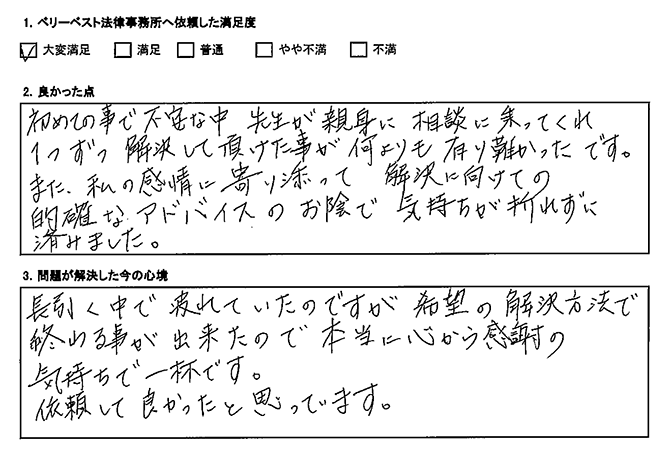 1. ベリーベスト法律事務所へ依頼した満足度
☑ 大変満足 □ 満足 □ 普通 □ やや不満 □ 不満
2. 良かった点
初めての事で不安な中 先生が親身に相談に乗ってくれ
1つずつ解決して頂けた事が何よりも有り難かったです。
また、私の感情に寄り添って解決に向けての
的確なアドバイスのお陰で気持ちが折れずに
済みました。
3. 問題が解決した今の心境
長引く中で疲れていたのですが希望の解決方法で
終わる事が出来たので本当に心から感謝の
気持ちで一杯です。
依頼して良かったと思っています。